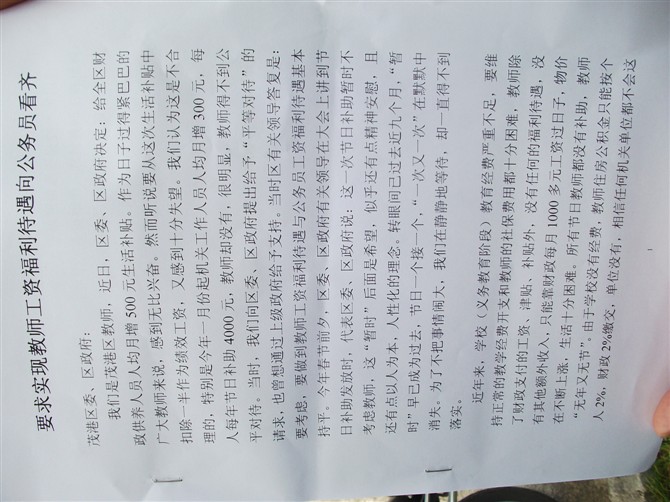 要求实现教师工资福利待遇向公务员看齐
茂港区委、区政府：
我们是茂港区教师，近日，区委、区政府决定：给全区财
政供养人员人均月增 500 元生活补贴。作为日子过得紧巴巴的
广大教师来说，感到无比兴奋。然而听说要从这次生活补贴中
扣除一半作为绩效工资，又感到十分失望。我们认为这是不合
理的，特别是今年一月份起机关工作人员人均月增 300 元，每
人每年节日补助 4000 元，教师却没有，很明显，教师得不到公
平对待。当时，我们向区委、区政府提出给予“平等对待”的
请求，也曾想通过上级政府给予支持。当时区有关领导答复是：
要考虑，要做到教师工资福利待遇与公务员工资福利待遇基本
持平。今年春节前夕，区委、区政府有关领导在大会上讲到节
日补助发放时，代表区委、区政府说，这一次节日补助暂时不
考虑教师，这“暂时”后面是希望，似乎还有点精神安慰，且
还有点以人为本，人性化的理念。转眼间已过去近九个月，“暂
时”早已成为过去，节日一个接一个，“一次又一次”在默默中
消失。为了不把事情闹大，我们在静静地等待，却一直得不到
落实。
近年来，学校（义务教育阶段）教育经费严重不足，要维
持正常的教学经费开支和教师的社保费用都十分困难，教师除
了财政支付的工资、津贴、补贴外，没有任何的福利待遇，没
有其他额外收入，只能靠财政每月 1000 多元工资过日子，物价
在不断上涨，生活十分困难。所有节日教师都没有补助，教师
“无年又无节”。由于学校没有经费，教师住房公积金只能按个
人 2%，财政 2%缴交，单位没有，相信任何机关单位都不会这
1